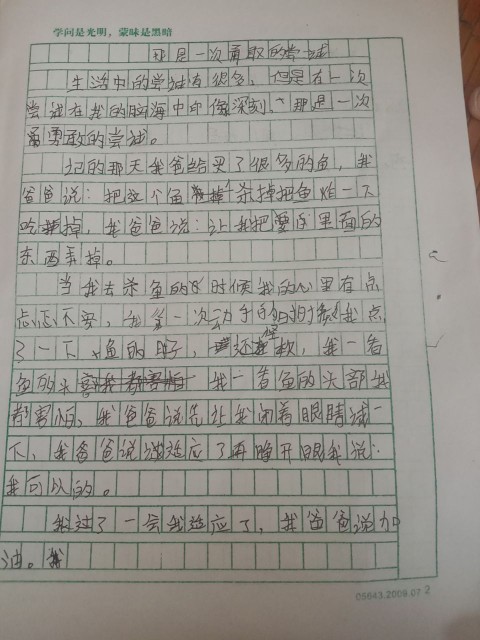 学问是光明，蒙昧是黑暗
那是一次勇敢的尝试
生活中的尝试有很多，但是有一次
尝试在我的脑海中印像深刻，那是一次
勇敢的尝试。
记的那天我爸给买了很多的鱼，我
爸爸说：把这个鱼杀掉把鱼怕一下
吃掉，我爸爸说：让我把里面的
东西弄掉。
当我去杀鱼的时候我的心里有点
忐忑不安，我第一次动手的时候我点
了一下鱼的肚子，还软，我一看
鱼的头我一看鱼的头部我
都害怕，我爸爸说先让我闭着眼睛试一
下，我爸爸说适应了再睁开眼我说：
我可以的。
过了一会我适应了，我爸爸说加
油。我
05643.2009.07 2